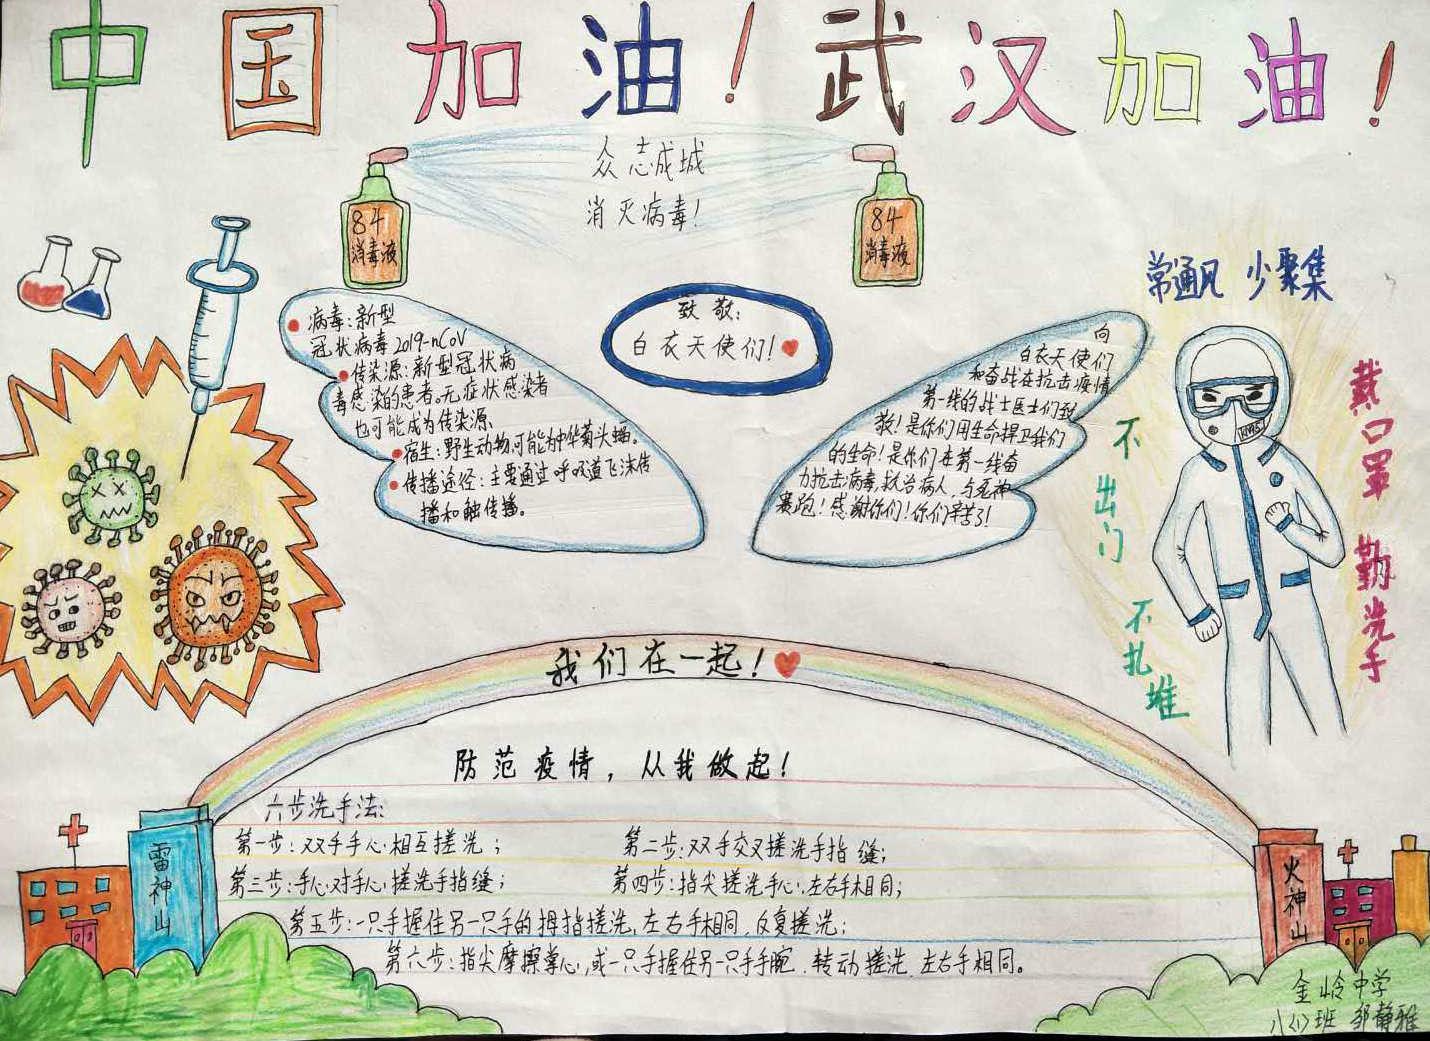 中国加油！武汉加油！
众志成城
消灭病毒！
84
消毒液
84
消毒液
致敬：
白衣天使们！
病毒：新型
冠状病毒2019-nCoV
传染源：新型冠状病
毒感染的患者。无症状感染者
也可能成为传染源
宿主：野生动物,可能为中华菊头蝠。
传播途径：主要通过呼吸道飞沫传
播和触传播。
向
白衣天使们
和奋战在抗击疫情
第一线的战士医士们致
敬！是你们用生命捍卫我们
的生命！是你们在第一线奋
力抗击病毒,救治病人,与死神
赛跑！感谢你们！你们辛苦了！
常通风 少聚集
不出门
不扎堆
戴口罩
勤洗手
我们在一起！
防范疫情，从我做起！
六步洗手法：
第一步：双手手心相互搓洗；
第二步：双手交叉搓洗手指缝；
第三步：手心对手心搓洗手指缝；
第四步：指尖搓洗手心,左右手相同；
第五步：一只手握住另一只手的拇指搓洗,左右手相同,反复搓洗；
第六步：指尖摩擦掌心,或一只手握住另一只手手腕,转动搓洗,左右手相同。
雷神山
火神山
金岭中学
八〈1〉班 邹静雅